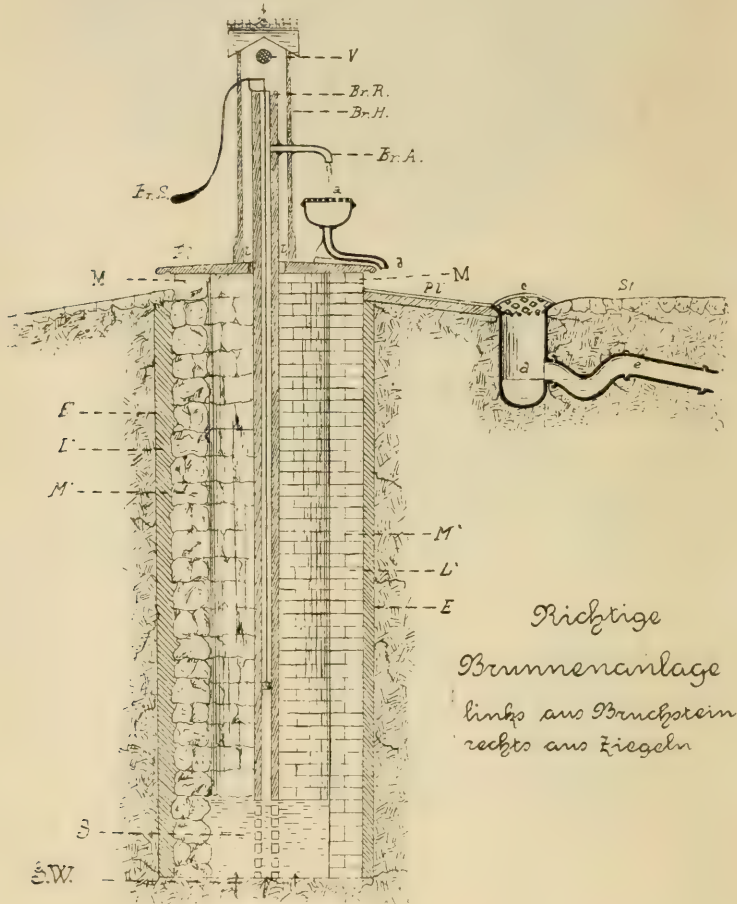 V
Br.R.
Br.H.
Br.A.
a
Br.S.
b
M
M
Pl
c
St
d
e
E
L'
M'
M'
L'
E
S
S.W.
Richtige
Brunnenanlage
links aus Bruchstein
rechts aus Ziegeln